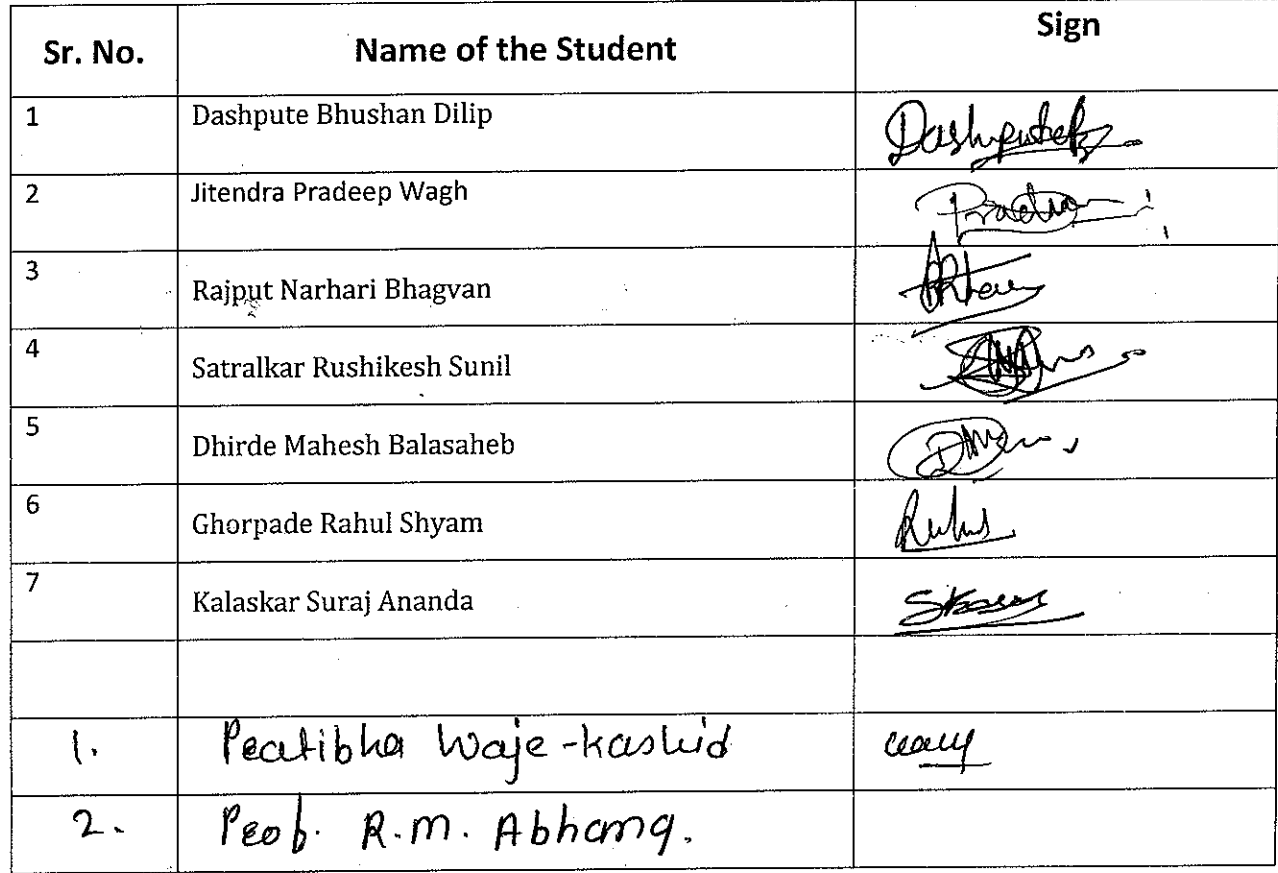 Sr. No. Name of the Student Sign
1 Dashpute Bhushan Dilip Dashpute
2 Jitendra Pradeep Wagh
3 Rajput Narhari Bhagvan
4 Satralkar Rushikesh Sunil
5 Dhirde Mahesh Balasaheb
6 Ghorpade Rahul Shyam
7 Kalaskar Suraj Ananda
1. Pratibha Waje-Kashid
2. Prof. R.M. Abhang.